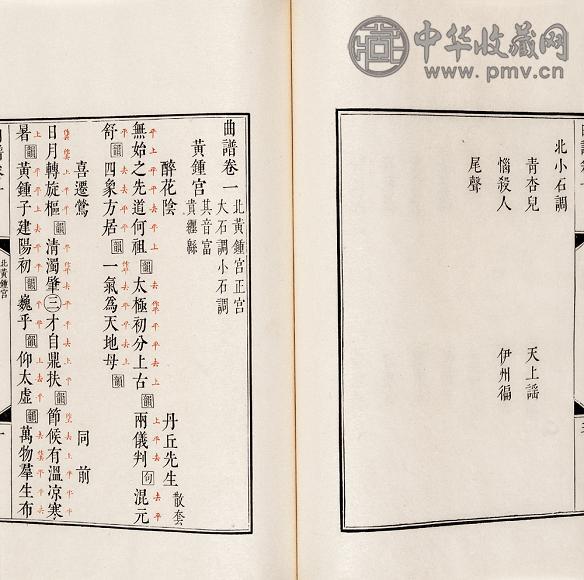 中华收藏网
www.pmv.cn
北小石調
青杏兒 天上謠
惱殺人 伊州徧
尾聲
曲譜卷一
北黃鍾宮正宮
大石調小石調
黃鍾宮
其音富
貴纏緜
醉花陰 丹丘先生 散套
無始之先道何祖韻太極初分上古韻兩儀判句混元
舒韻四象方居韻一氣為天地母韻
喜遷鶯 同前
日月轉旋樞韻清濁肇三才自鼎扶韻節候有溫涼寒
暑韻黃鍾子建陽初韻巍乎韻仰太虛韻萬物羣生布
北黃鍾宮